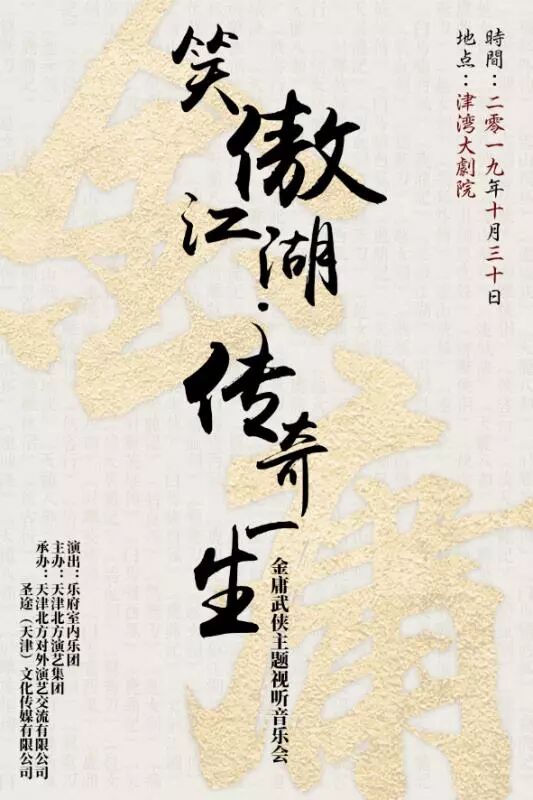 時間：二零一九年十月三十日
地点：津湾大劇院
笑傲江湖·传奇一生
金庸武侠主题视听音乐会
金庸
演出：乐府室内乐团
主办：天津北方演艺集团
承办：天津北方对外演艺交流有限公司
圣途（天津）文化传媒有限公司